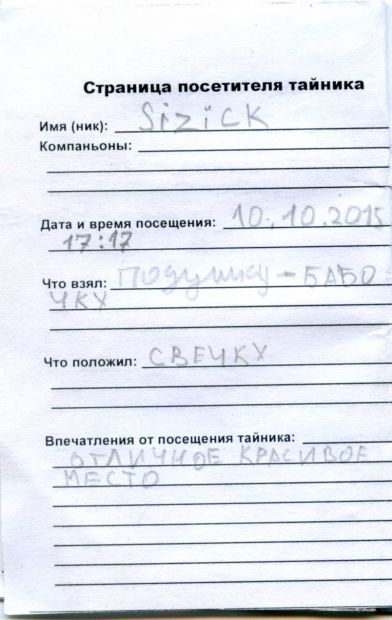 Страница посетителя тайника
Имя (ник): SiZiCK
Компаньоны:
Дата и время посещения: 10.10.2015
17:17
Что взял: Подушку - БАБО
ЧКУ
Что положил: СВЕЧКУ
Впечатления от посещения тайника:
ОТЛИЧНОЕ КРАСИВОЕ
МЕСТО